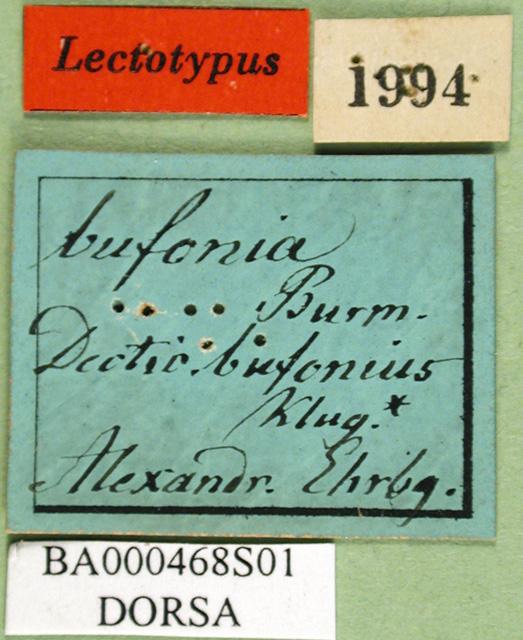 Lectotypus
1994
bufonia
Burm.
Dectic. bufonius
Klug.*
Alexandr. Ehrbg.
BA000468S01
DORSA